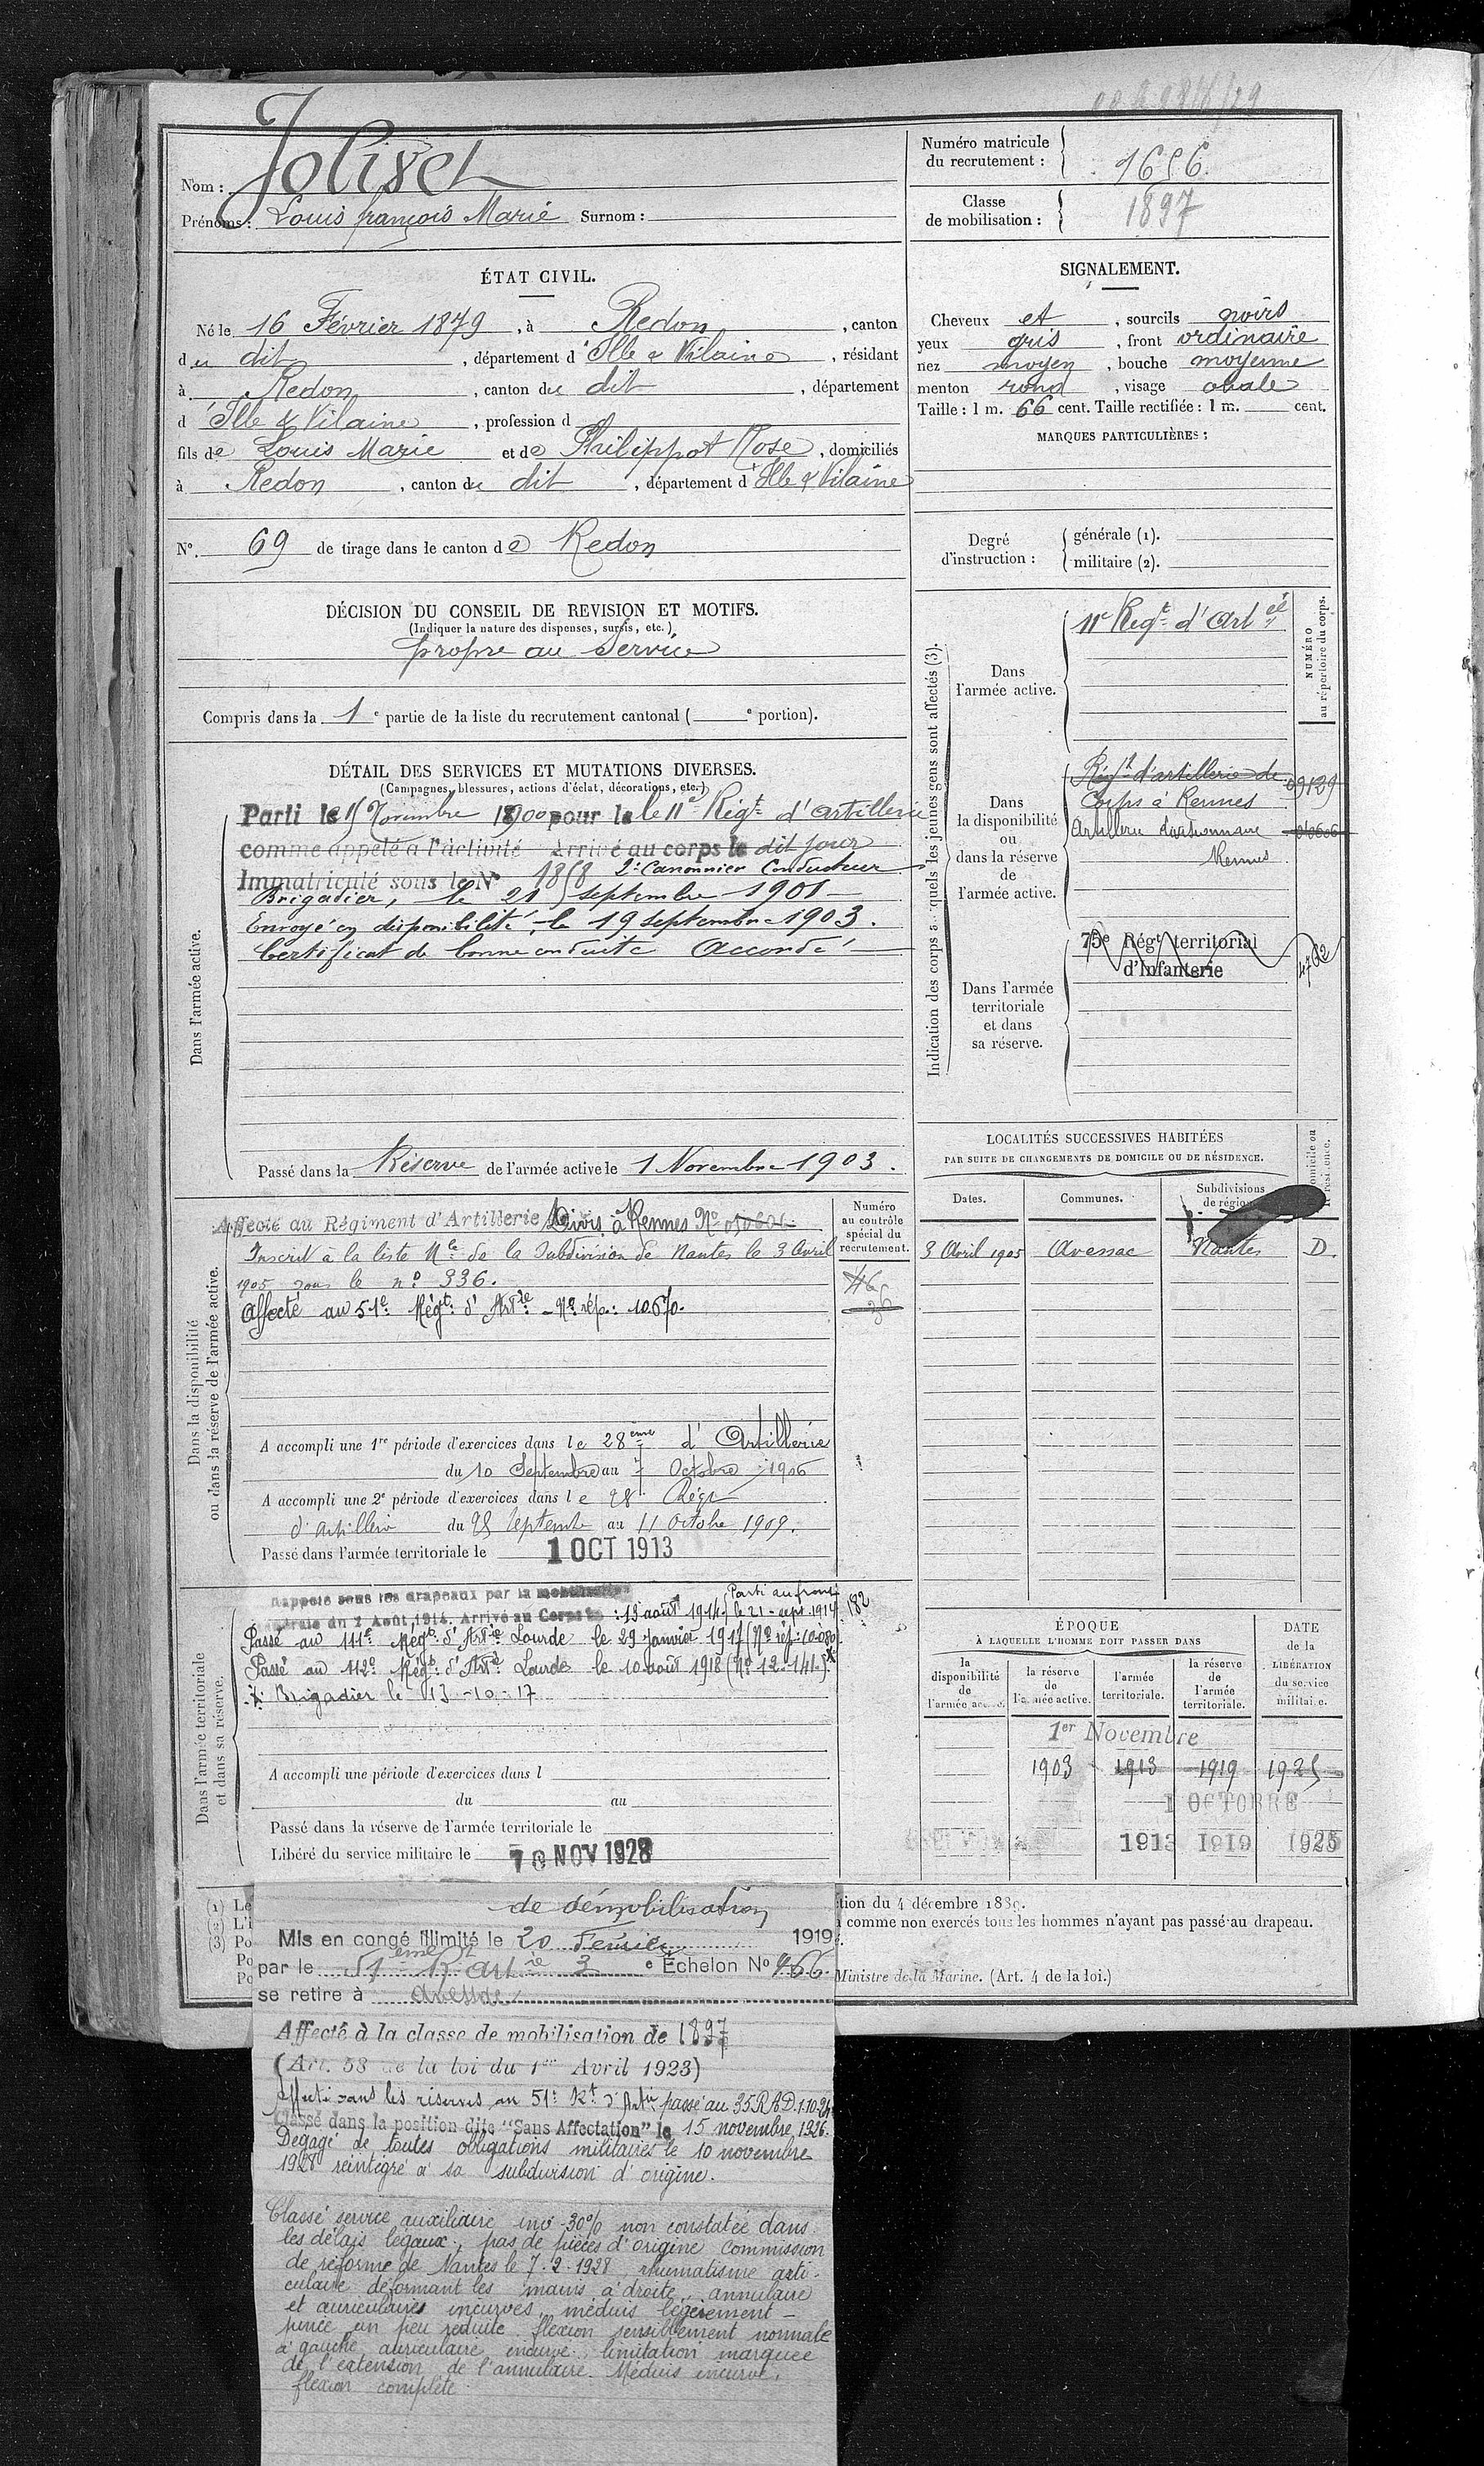 Nom : Jolivet
Prénoms : Louis françois Marie Surnom :
Numéro matricule
du recrutement : 1656.
Classe
de mobilisation : 1897
ÉTAT CIVIL.
Né le 16 Février 1879, à Redon, canton
du dit, département d'Ille & Vilaine, résidant
à Redon, canton du dit, département
d'Ille & Vilaine, profession d
fils de Louis Marie et de Philippot Rose, domiciliés
à Redon, canton du dit, département d'Ille & Vilaine
N° 69 de tirage dans le canton de Redon
SIGNALEMENT.
Cheveux et, sourcils noirs
yeux gris, front ordinaire
nez moyen, bouche moyenne
menton rond, visage ovale
Taille : 1 m. 66 cent. Taille rectifiée : 1 m. cent.
MARQUES PARTICULIÈRES :
Degré
d'instruction :
générale (1).
militaire (2).
DÉCISION DU CONSEIL DE REVISION ET MOTIFS.
(Indiquer la nature des dispenses, sursis, etc.)
propre au Service
Compris dans la 1e partie de la liste du recrutement cantonal ( e portion).
DÉTAIL DES SERVICES ET MUTATIONS DIVERSES.
(Campagnes, blessures, actions d'éclat, décorations, etc.)
Dans l'armée active.
Parti le 15 Novembre 1900 pour le le 11e Régt d'artillerie
comme appelé à l'activité Arrivé au corps le dit jour
Immatriculé sous le N° 1858 2e Canonnier Conducteur
Brigadier, le 21 septembre 1901
Envoyé en disponibilité, le 19 septembre 1903.
Certificat de bonne conduite Accordé
Passé dans la Réserve de l'armée active le 1 Novembre 1903.
Indication des corps auxquels les jeunes gens sont affectés (3).
NUMÉRO
au répertoire du corps.
Dans
l'armée active.
11e Regt d'Artie
Dans
la disponibilité
ou
dans la réserve
de
l'armée active.
Régt d'artillerie de
Corps à Rennes 09129
Artillerie divisionnaire
Rennes
Dans l'armée
territoriale
et dans
sa réserve.
75e Régt territorial
d'Infanterie
4762
LOCALITÉS SUCCESSIVES HABITÉES
PAR SUITE DE CHANGEMENTS DE DOMICILE OU DE RÉSIDENCE.
Dates. Communes. Subdivisions
de région
3 Avril 1905 Avessac Nantes D.
Dans la disponibilité
ou dans la réserve de l'armée active.
Numéro
au contrôle
spécial du
recrutement.
Affecté au Régiment d'Artillerie Divis. à Rennes N° 010606
Inscrit à la liste Mle de la Subdivision de Nantes le 3 Avril
1905 sous le n° 336.
Affecté au 51e Régt d'Artie - N° rép.: 10670.
A accompli une 1re période d'exercices dans le 28ème d'Artillerie
du 10 Septembre au 7 Octobre 1906
A accompli une 2e période d'exercices dans le 28e Régt
d'artillerie du 25 Septembre au 11 Octobre 1909.
Passé dans l'armée territoriale le 1 OCT 1913
Dans l'armée territoriale
et dans sa réserve.
Rappelé sous les drapeaux par la mobilisation
générale du 2 Août 1914. Arrivé au Corps le : 15 août 1914. Parti au front
le 21 - sept. 1914. 182
Passé au 111e Régt d'Artie Lourde le 29 Janvier 1917 (N° rép: 10080)
Passé au 112e Régt d'Artie Lourde le 10 août 1918 (N° 12.141.)
Brigadier le 13-10-17
A accompli une période d'exercices dans l
du au
Passé dans la réserve de l'armée territoriale le
Libéré du service militaire le 10 NOV 1928
ÉPOQUE
À LAQUELLE L'HOMME DOIT PASSER DANS
DATE
de la
LIBÉRATION
du service
militaire.
la
disponibilité
de
l'armée active.
la réserve
de
l'armée active.
l'armée
territoriale.
la réserve
de
l'armée
territoriale.
1er Novembre
1903 1913 1919 1925
1 OCTOBRE
1913 1919 1925
(1) Le
(2) L'i
(3) Po
Po
Po
tion du 4 décembre 1889.
comme non exercés tous les hommes n'ayant pas passé au drapeau.
Ministre de la Marine. (Art. 4 de la loi.)
de démobilisation
Mis en congé illimité le 20 Février 1919
par le 51ème Rt artie 3e Échelon N° 466.
se retire à Avessac
Affecté à la classe de mobilisation de 1897
(Art. 58 de la loi du 1er Avril 1923)
Affecté dans les réserves au 51e Rt d'Artie passé au 35 RAD 1.10.24
Classé dans la position dite "Sans Affectation" le 15 novembre 1926.
Dégagé de toutes obligations militaires le 10 novembre
1928 réintégré à sa subdivision d'origine.
Classé service auxiliaire inv -30% non constatée dans
les délais légaux, pas de pièces d'origine commission
de réforme de Nantes le 7.2.1928, rhumatisme arti-
culaire déformant les mains à droite, annulaire
et auriculaires incurvés, médius légèrement -
pince un peu réduite flexion sensiblement normale
à gauche auriculaire incurvé, limitation marquée
de l'extension de l'annulaire. Médius incurvé,
flexion complète